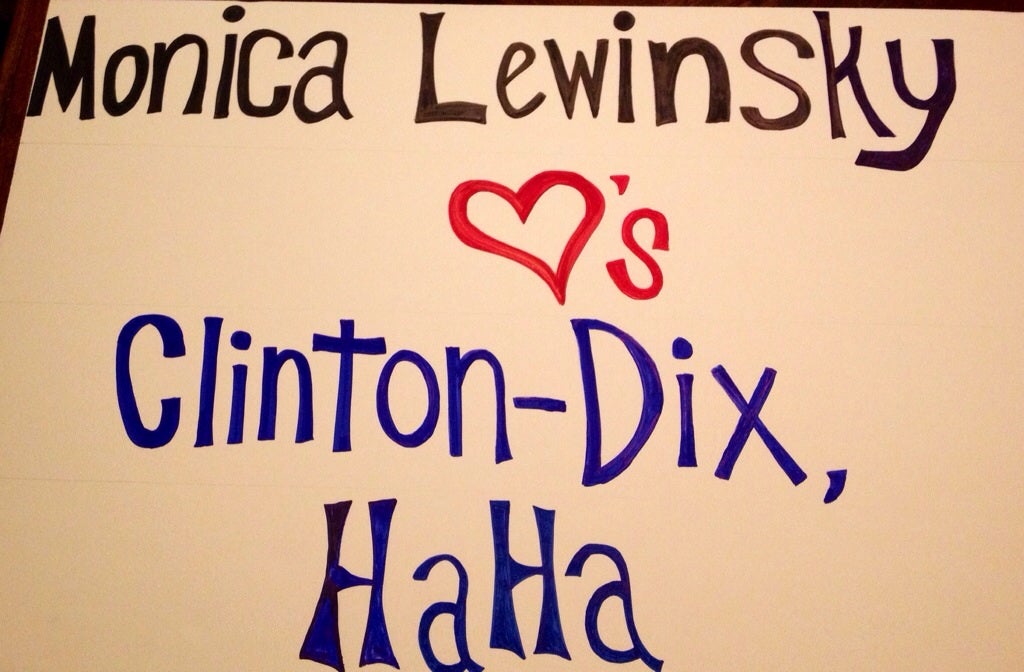 Monica Lewinsky
♡'s
Clinton-Dix,
HaHa